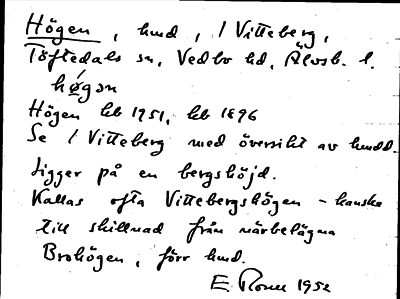 Högen, hmd, 1 Vitteberg,
Töftedals sn, Vedbo hd, Älvsb. l.
hǿgən
Högen hb 1951, hb 1896
Se 1 Vitteberg med översikt av hmdd.
Ligger på en bergshöjd.
Kallas ofta Vittebergshögen - kanske
till skillnad från närbelägna
Brohögen, förr hmd.
E 1952